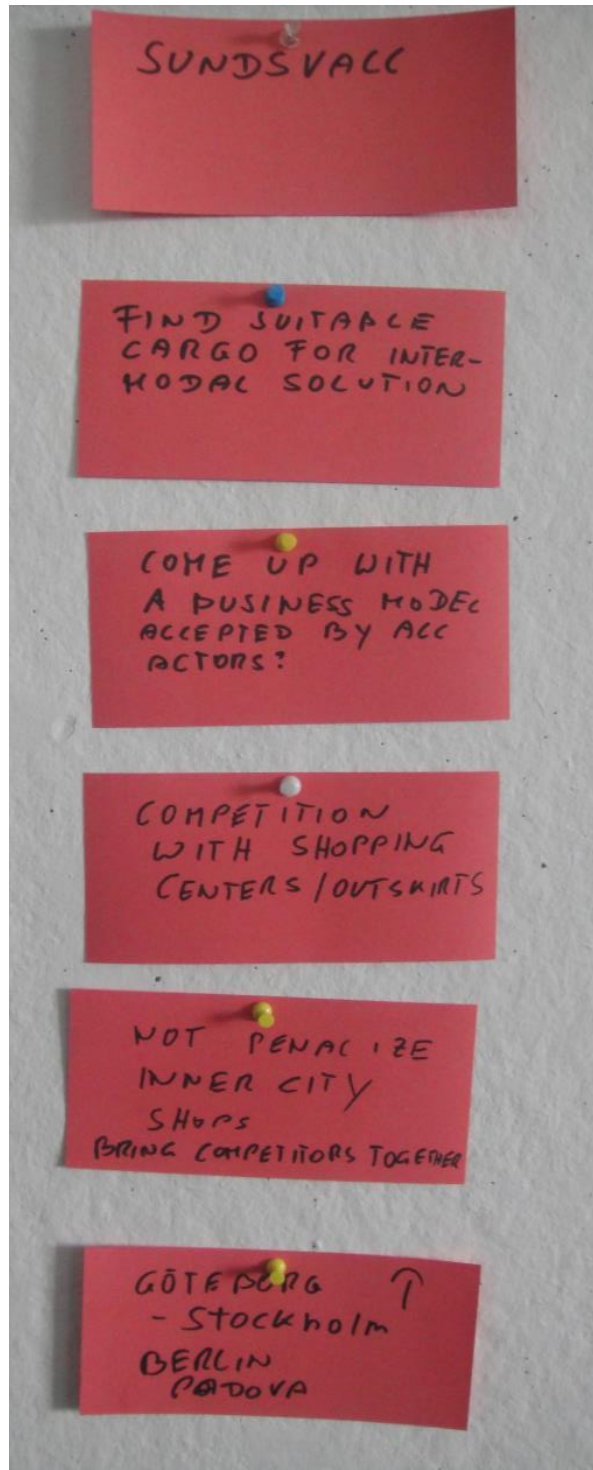 SUNDSVALL
FIND SUITABLE
CARGO FOR INTER-
MODAL SOLUTION
COME UP WITH
A BUSINESS MODEL
ACCEPTED BY ALL
ACTORS?
COMPETITION
WITH SHOPPING
CENTERS/OUTSKIRTS
NOT PENALIZE
INNER CITY
SHOPS
BRING COMPETITORS TOGETHER
GÖTEBORG ↑
- Stockholm
BERLIN
PADOVA